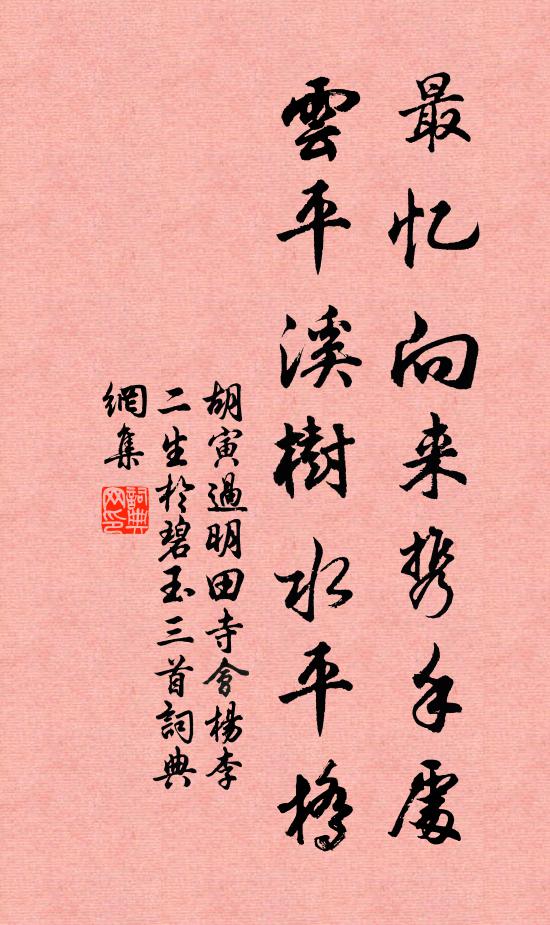 最忆向来携手處
雲平溪樹水平橋
胡寅過明田寺會楊李
二生於碧玉三首詞典
網集
詞典
网印